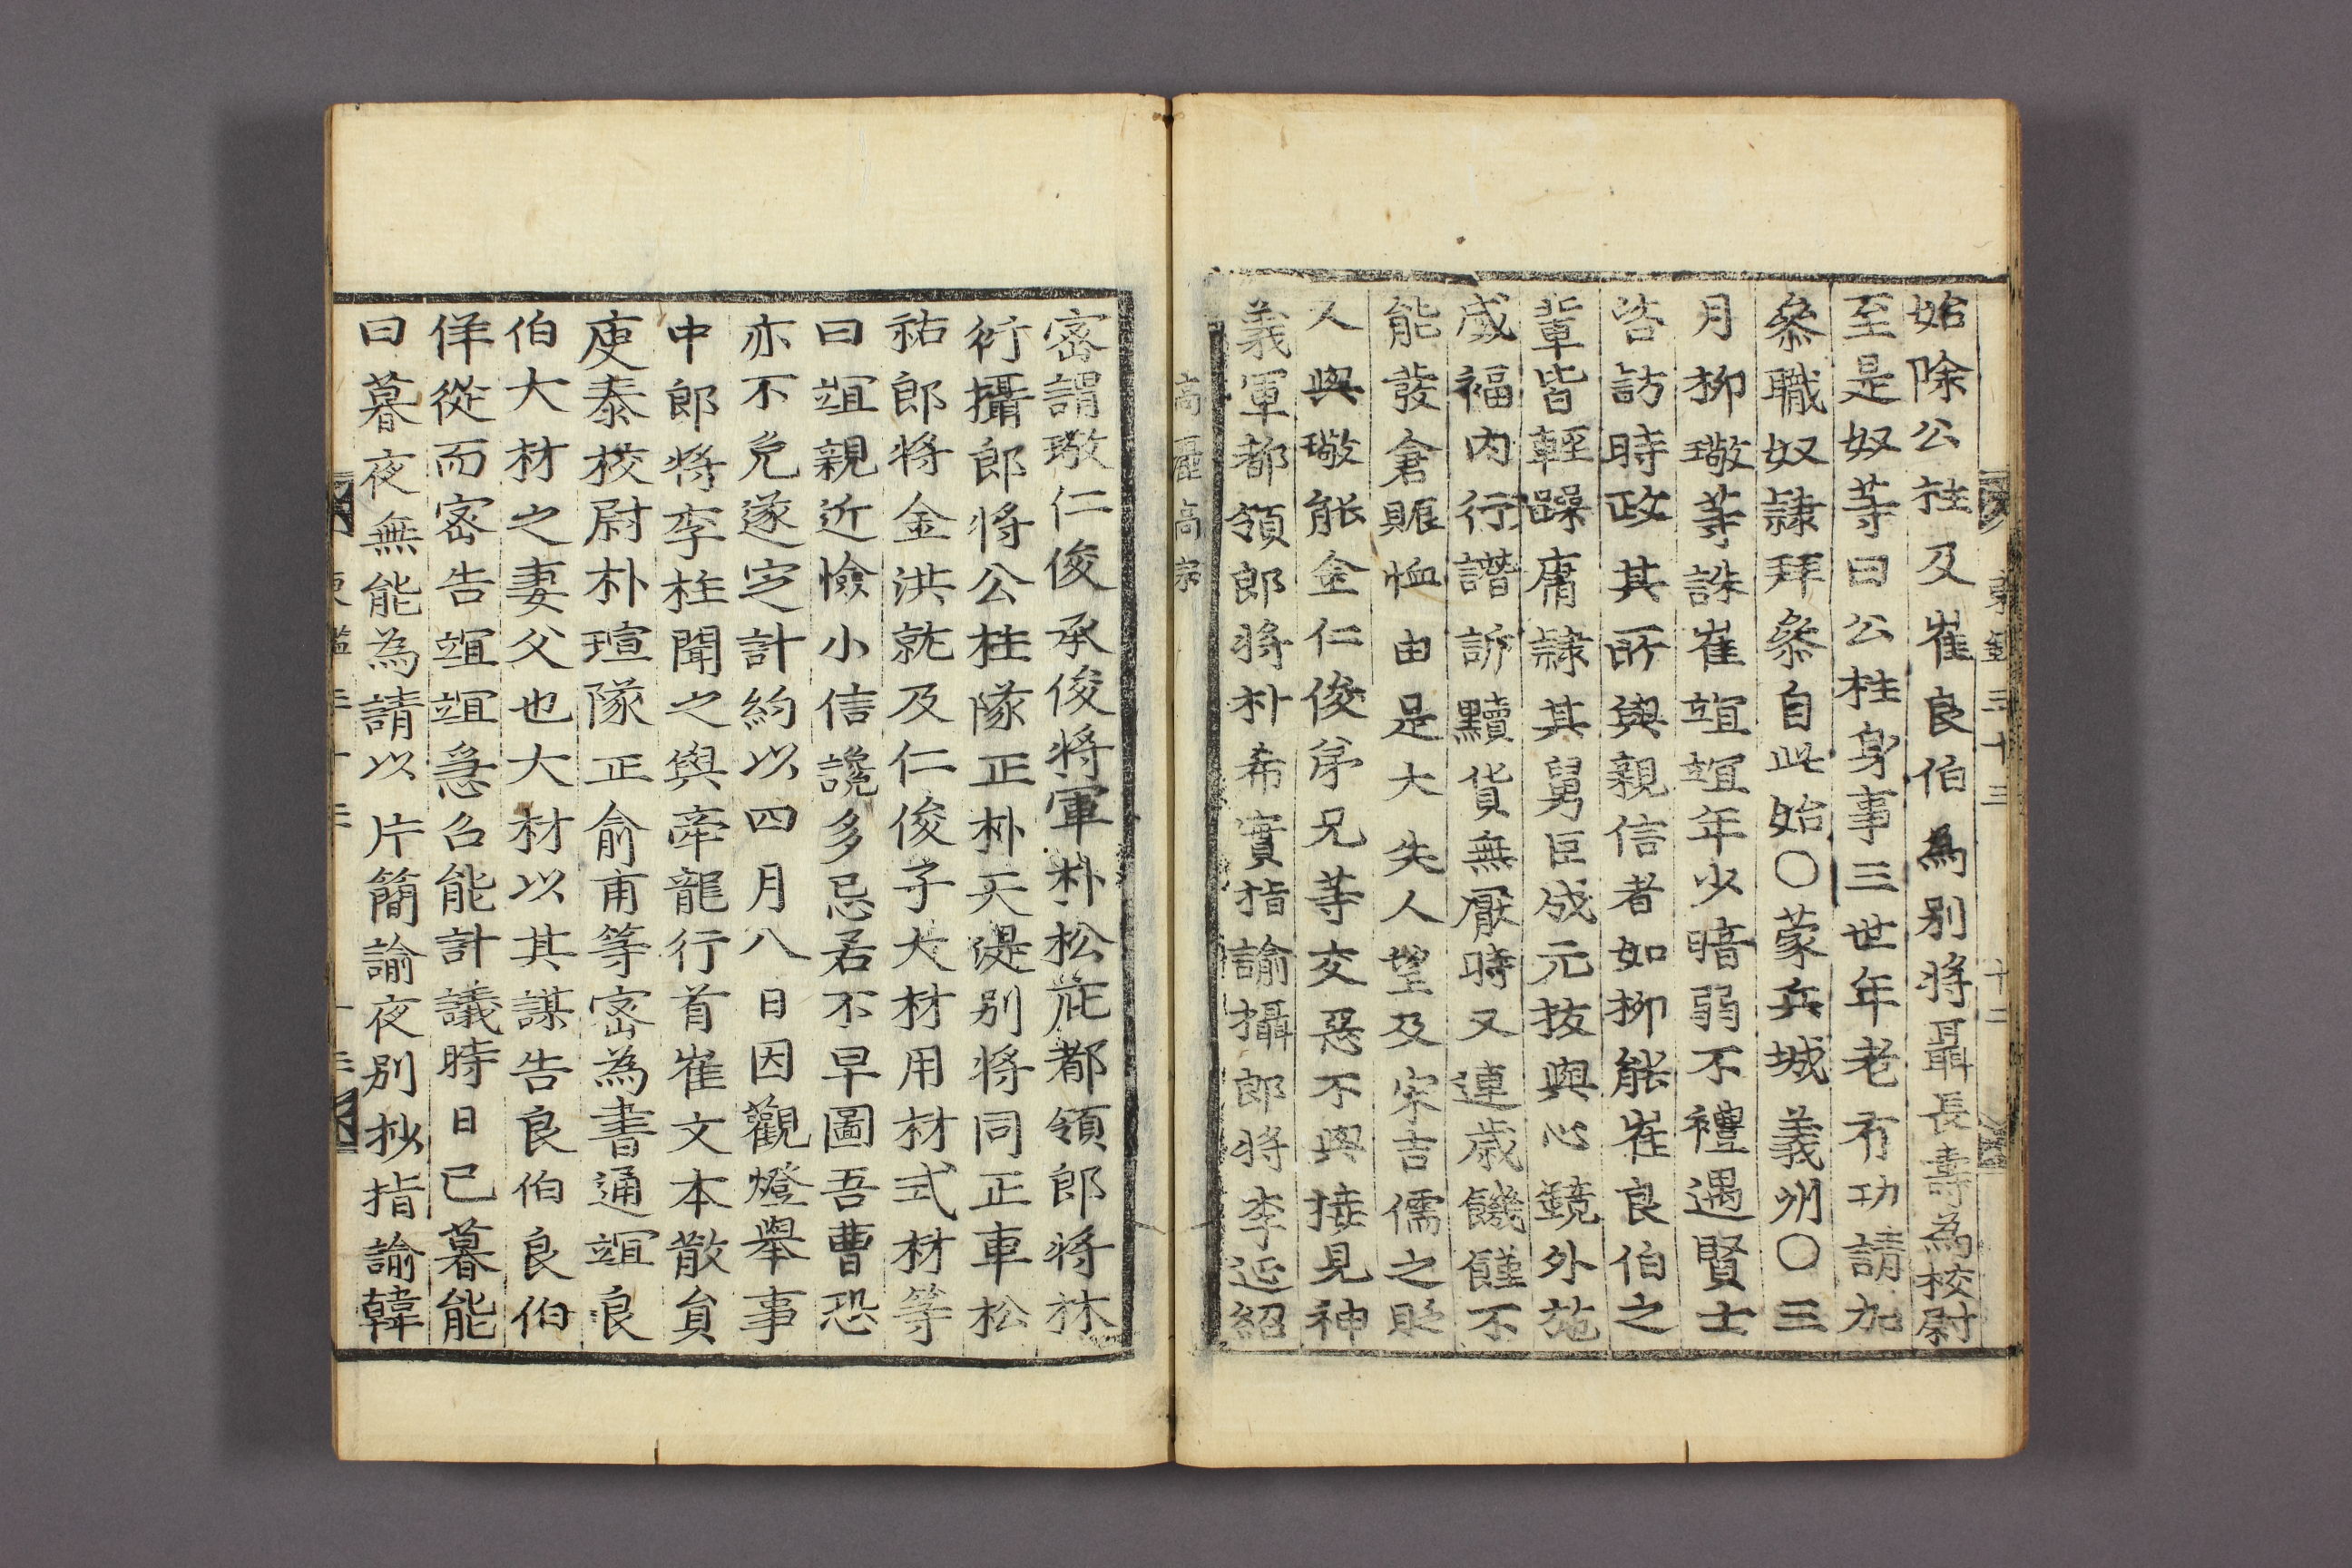 始除公柱及崔良伯為別將聶長壽為校尉
至是奴等曰公柱身事三世年老有功請加
叅職奴隷拜叅自此始○蒙兵城義州○三
月柳璥等誅崔竩竩年少暗弱不禮遇賢士
咨訪時政其所與親信者如柳能崔良伯之
輩皆輕躁庸隷其舅巨成元拔與心鏡外施
威福內行譖訴黷貨無厭時又連歲饑饉不
能發倉賑恤由是大失人望及宋吉儒之貶
又與璥能金仁俊弟兄等交惡不與接見神
義軍都領郎將朴希實指諭攝郎將李延紹
高麗高宗
密謂璥仁俊承俊將軍朴松庇都領郎將林
衍攝郎將公柱隊正朴天湜別將同正車松
祐郎將金洪就及仁俊子大材用材式材等
曰竩親近憸小信讒多忌若不早圖吾曹恐
亦不免遂定計約以四月八日因觀燈舉事
中郎將李柱聞之與牽龍行首崔文本散員
庾泰校尉朴瑄隊正俞甫等密為書通竩良
伯大材之妻父也大材以其謀告良伯良伯
佯從而密告竩竩急召能計議時日已暮能
曰暮夜無能為請以片簡諭夜別抄指諭韓